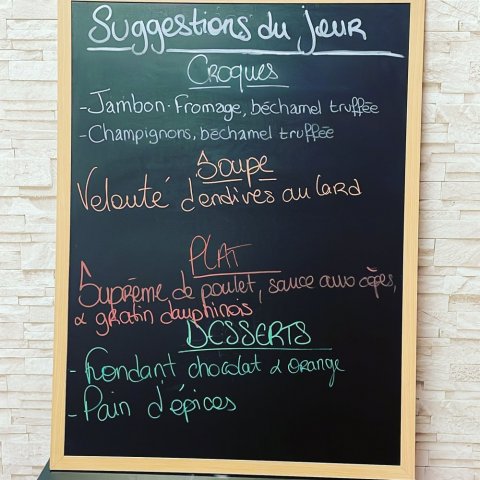 Suggestions du jour
Croques
- Jambon. Fromage, béchamel truffée
- Champignons, béchamel truffée
Soupe
Velouté d'endives au lard
PLAT
Suprême de poulet, sauce aux cèpes,
& gratin dauphinois
DESSERTS
- Fondant chocolat & orange
- Pain d'épices